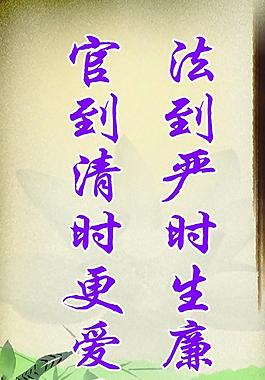 法到严时生廉
官到清时更爱